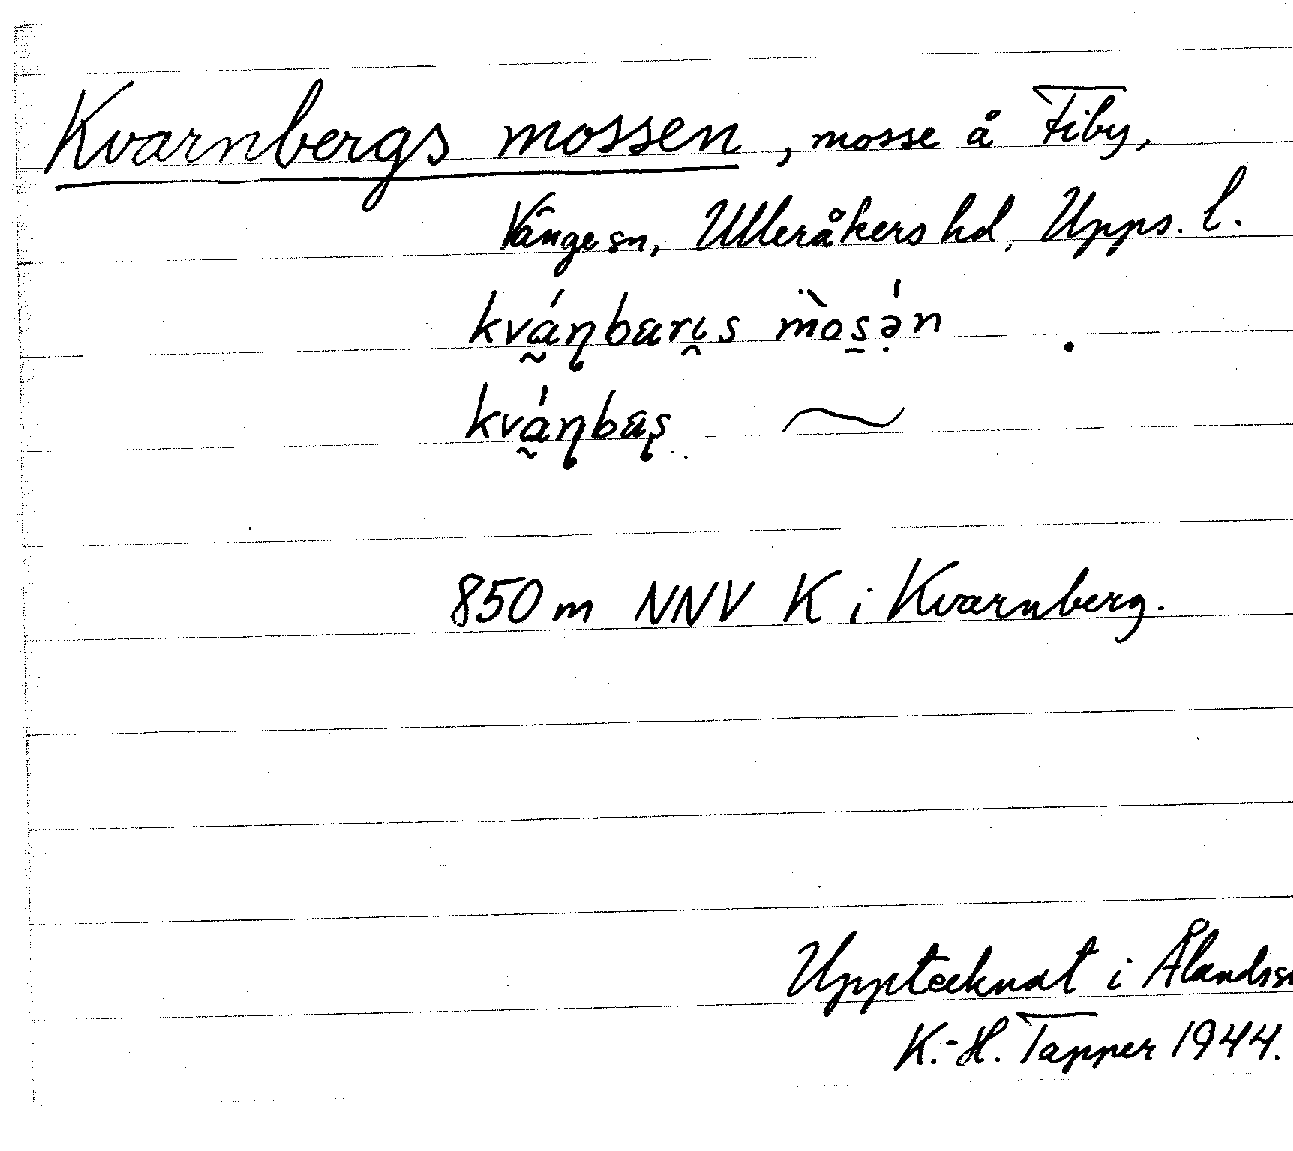 Kvarnbergs mossen, mosse å Fiby,
Vänge sn, Ulleråkers hd, Upps. l.
kvá̰ɳbærı̯s m̈òs̱ə̣́n
kvá̰ɳbæʂ ~
850 m NNV K i Kvarnberg.
Upptecknat i Ålandssn
K.-H. Tapper 1944.